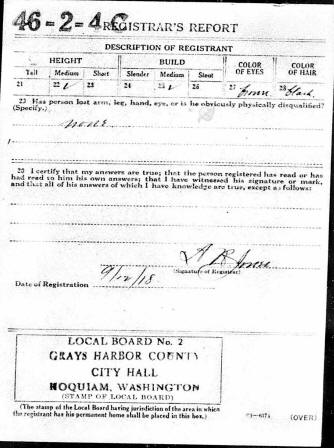 46-2-4 C REGISTRAR'S REPORT
DESCRIPTION OF REGISTRANT
HEIGHT BUILD COLOR OF EYES COLOR OF HAIR
Tall Medium Short Slender Medium Stout
21 22 ✓ 23 24 25 ✓ 26 27 Brown 28 Black
29 Has person lost arm, leg, hand, eye, or is he obviously physically disqualified?
(Specify.)
none
30 I certify that my answers are true; that the person registered has read or has
had read to him his own answers; that I have witnessed his signature or mark,
and that all of his answers of which I have knowledge are true, except as follows:
Jones
(Signature of Registrar)
Date of Registration 9/12/18
LOCAL BOARD No. 2
GRAYS HARBOR COUNTY
CITY HALL
HOQUIAM, WASHINGTON
(STAMP OF LOCAL BOARD)
(The stamp of the Local Board having jurisdiction of the area in which
the registrant has his permanent home shall be placed in this box.)
(OVER)